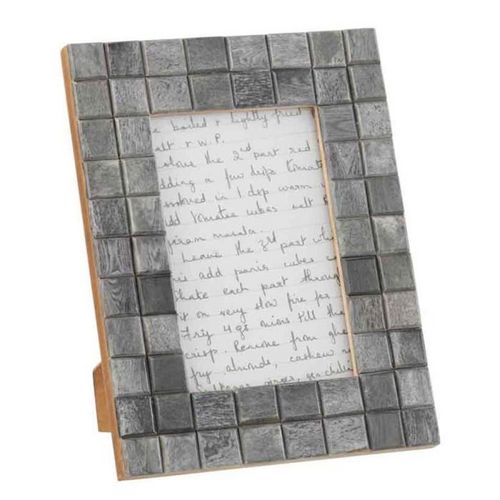 boiled & lightly fried
salt & W.P.
the 2nd part red
adding a few drops tomato
in 1 dsp warm
add tomatoe cubes salt &
garam masala.
Leave the 3rd part whi
add panir cubes
each part through
on very slow fire for
Fry 4 gr onions till the
crisp. Remove from ghe
fry almonds, cashew n